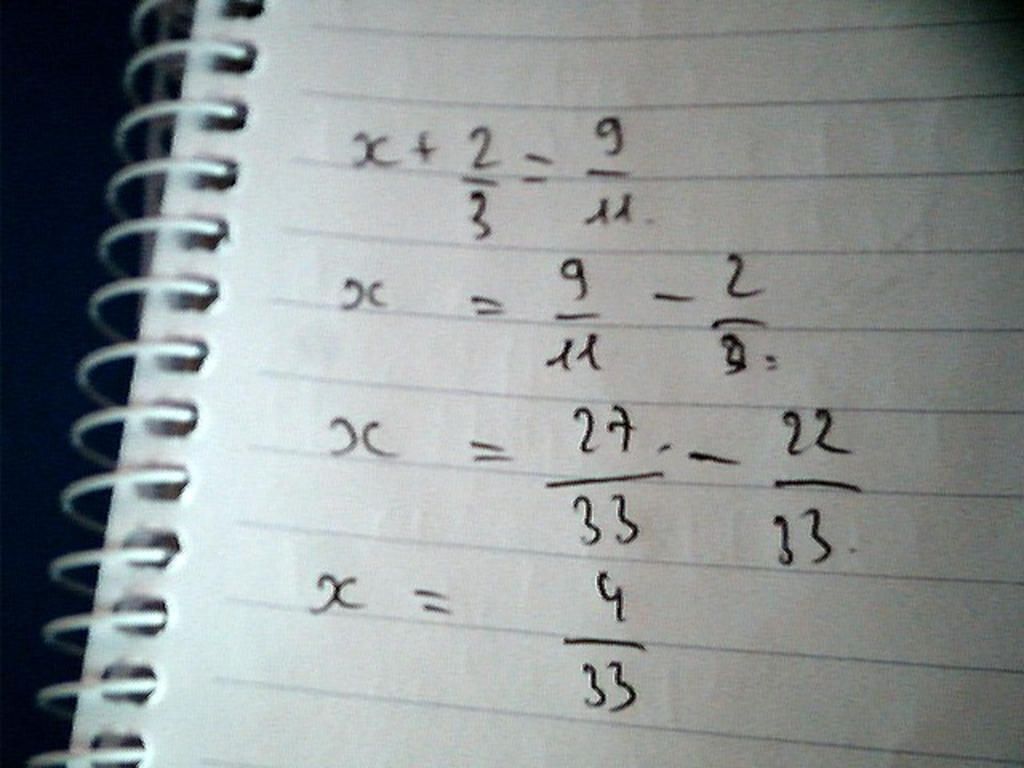 x + 2/3 = 9/11.
x = 9/11 - 2/3.
x = 27/33 - 22/33.
x = 4/33